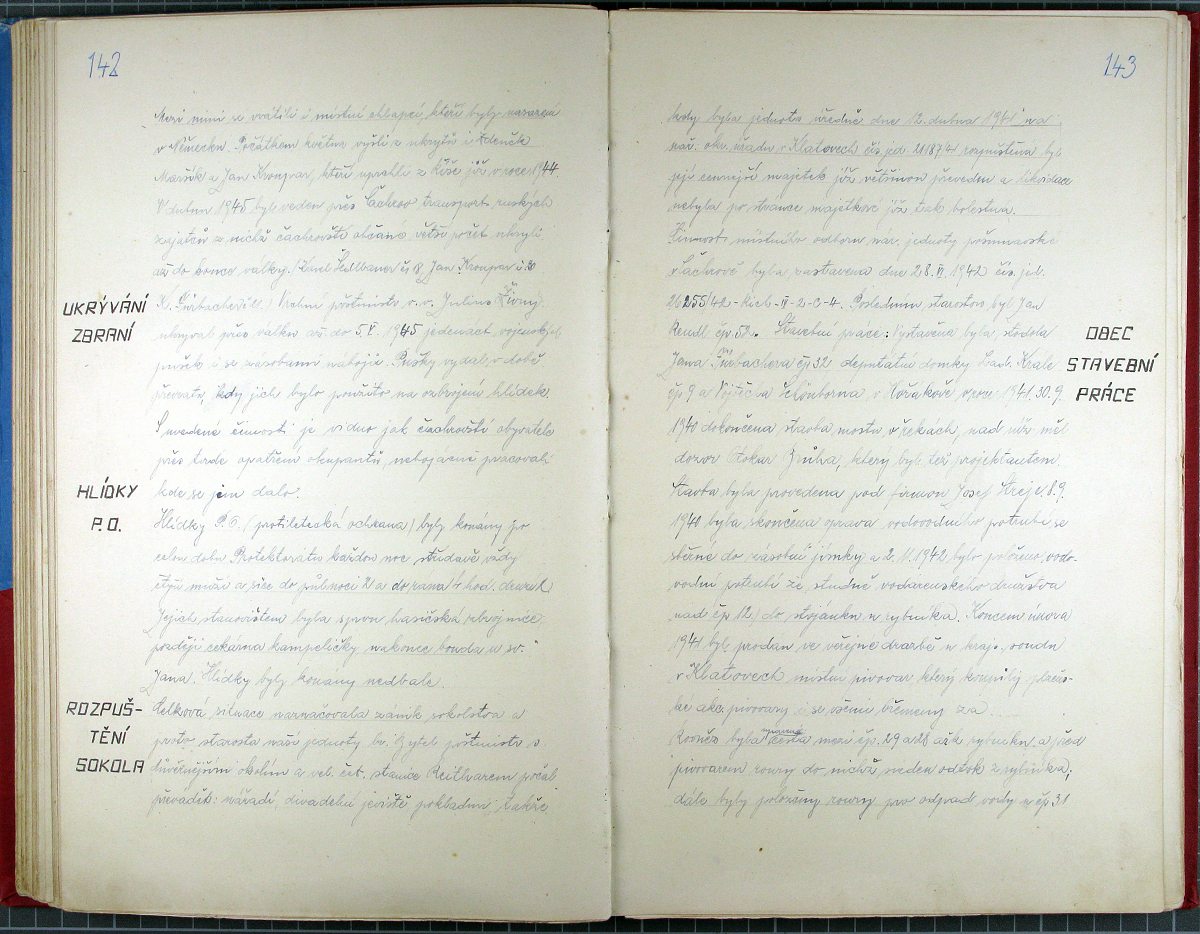 142
Mezi nimi se vrátili i místní chlapci, kteří byli nasazeni
v Německu. Počátkem května vyšli z úkrytů i Zdeněk
Mařík a Jan Kroupar, kteří uprchli z Říše již v roce 1944.
V dubnu 1945 byl veden přes Čachrov transport ruských
zajatců z nichž čachrovští občané větší počet ukryli
až do konce války. (Karel Sedlbauer čp 8, Jan Kroupar i
UKRÝVÁNÍ
ZBRANÍ
K. Vrchní poštmistr v.v. Julius Živný
ukrýval přes válku až do 5 V. 1945 jedenáct vojenských
pušek i se zásobami nábojů. Pušky vydal v době
převratu, kdy jich bylo použito na ozbrojení hlídek.
S uvedené činnosti je vidno jak čachrovští obyvatelé
přes tvrdé opatření okupantů, nebojácně pracovali
kde se jen dalo.
HLÍDKY
P.O.
Hlídky P.O. (protiletecká ochrana) byly konány po
celou dobu Protektorátu každou noc střídavě vždy
čtyři muži a sice do půlnoci 2 a do rana
Jejich stanovištěm byla zprvu hasičská zbrojnice
později čekárna kampeličky nakonec bouda u sv.
Jana. Hlídky byly konány nedbale.
ROZPUŠ-
TĚNÍ
SOKOLA
Celková situace naznačovala zánik sokolstva a
proto starosta naší jednoty br. Bytel poštmistr s
důvěrnějším okolím a vel. čet. stanice Reitharem počal
převádět: nářadí, divadelní jeviště pokladnu, takže
143
kdy byla jednota úředně dne 12. dubna 1941 na
nař. okr. úřadu v Klatovech čís. jed. 21187/41 rozpuštěna byl
její cennější majetek již většinou převeden a likvidace
nebyla po stránce majetkové již tak bolestná.
Činnost místního odboru nár. jednoty pošumavské
v Čachrově byla zastavena dne 28. VI. 1942 čís. jed.
26255/42 - II-2-C-4. Posledním starostou byl Jan
Rendl čp. 52.
OBEC
STAVEBNÍ
PRÁCE
Stavební práce: Vystavěna byla stodola
Jana čp 32 deputátní domky Lad. Krále
čp 9 a Vojtěcha Schönborna v Kořakově v roce 1941. 30.9.
1940 dokončena stavba mostu v řekách, nad níž měl
dozor Otokar Zrůha, který byl též projektantem.
Stavba byla provedena pod firmou Josef Streje 8.9.
1940 byla skončena oprava vodovodního potrubí se
sběrné do zásobní jímky a 2.11.1942 bylo položeno vodo-
vodní potrubí ze studně vodárenského družstva
nad čp 12, do stojánku u rybníka. Koncem února
1941 byl prodán ve veřejné dražbě u kraj. soudu
v Klatovech místní pivovar který koupily plzeňs-
ké akc. pivovary i se všemi břemeny za
Rovněž byla cesta mezi čp. 29 a 28 až k rybníku, a před
pivovarem roury do nichž sveden odtok z rybníka;
dále byly položeny roury pro odpad vody u čp 31